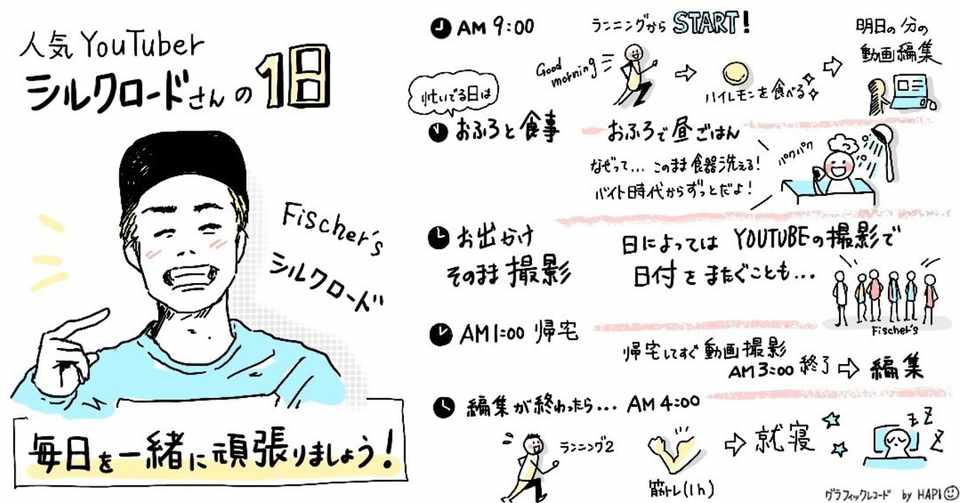 人気YouTuber
シルクロードさんの1日
Fischer's
シルクロード
毎日を一緒に頑張りましょう!
AM 9:00
ランニングからSTART!
Good morning
ハイレモンを食べる
明日の分の
動画編集
忙いでる日は
おふろと食事
おふろで昼ごはん
なぜって...このまま食器洗える!
バイト時代からずっとだよ!
パクパク
お出かけ
そのまま撮影
日によっては YOUTUBEの撮影で
日付をまたぐことも...
Fischer's
AM1:00 帰宅
帰宅してすぐ動画撮影
AM3:00 終了⇨編集
編集が終わったら... AM4:00
ランニング2
筋トレ(1h)
⇨就寝
ZZZ
グラフィックレコード by HAPI